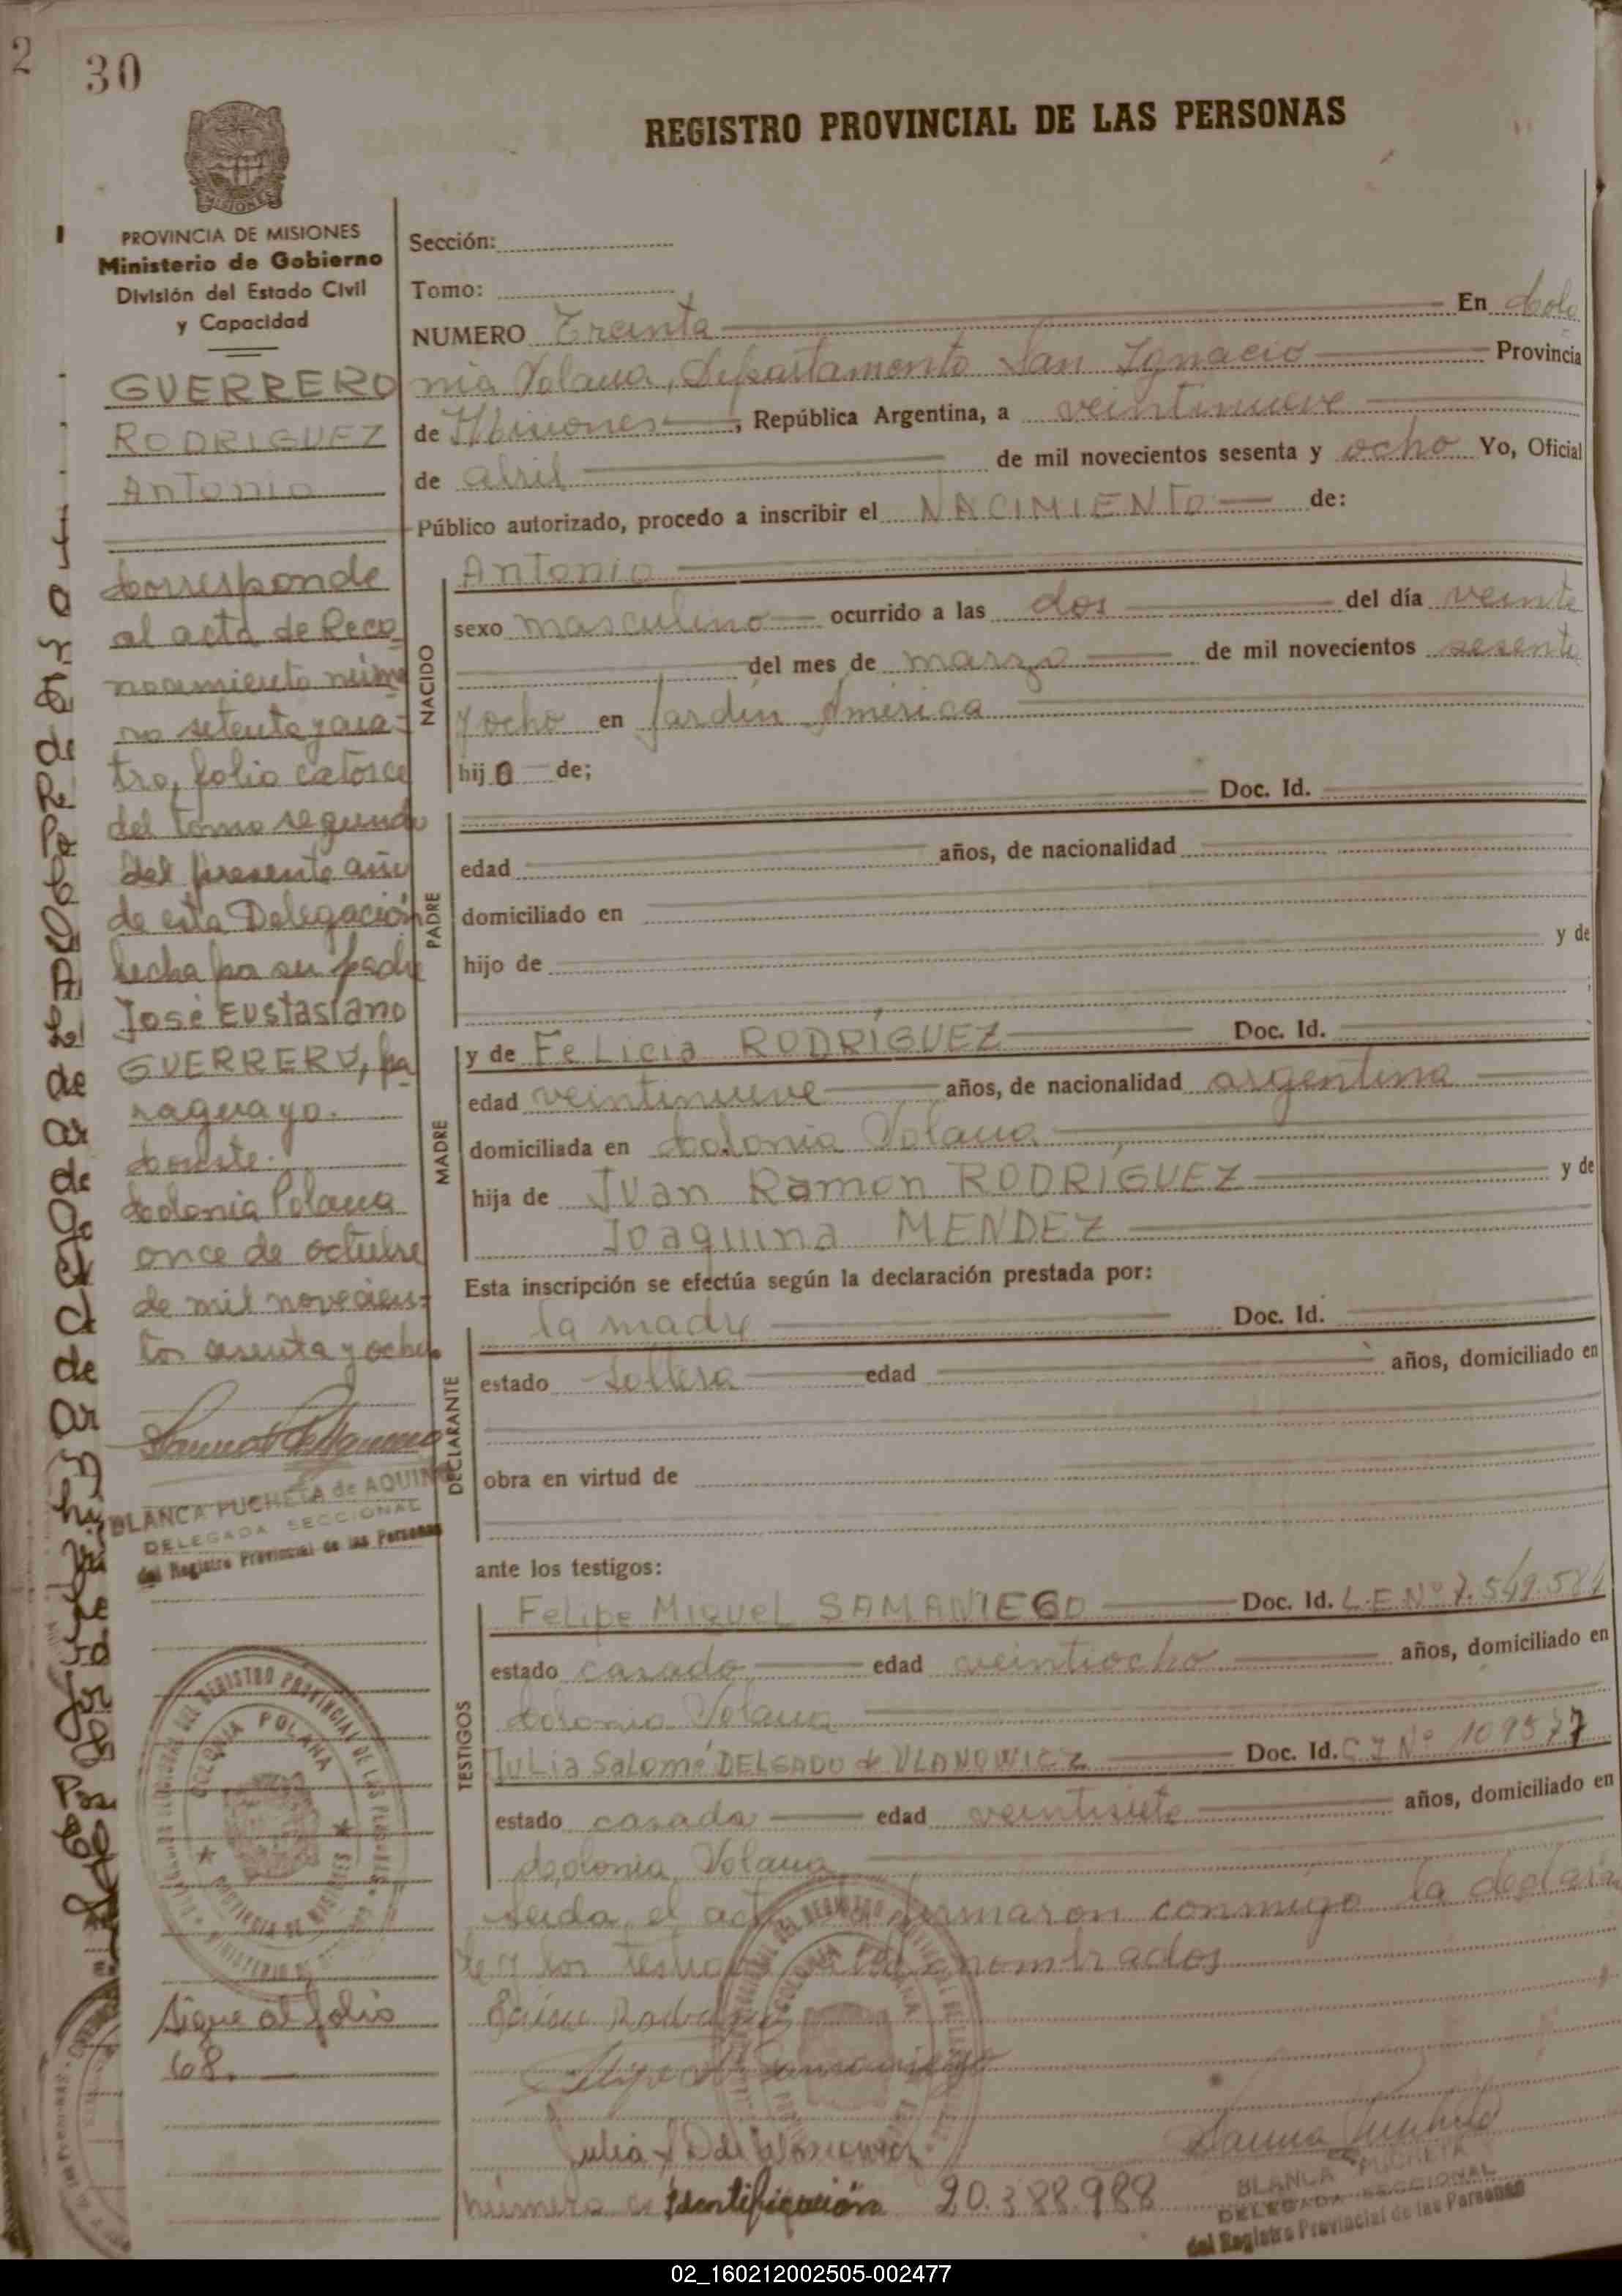 2
30
REGISTRO PROVINCIAL DE LAS PERSONAS
MISIONES
PROVINCIA DE MISIONES
Ministerio de Gobierno
División del Estado Civil
y Capacidad
GUERRERO
RODRIGUEZ
Antonio
Corresponde
al acta de Reco_
nocimiento núme
ro setenta y cua-
tro, folio catorce
del tomo segundo
del presente año
de esta Delegación
hecha por su padre
José Eustasiano
GUERRERO, pa_
raguayo.
Conste.
Colonia Polana
once de octubre
de mil novecien-
tos sesenta y ocho.
BLANCA PUCHETA de AQUINO
DELEGADA SECCIONAL
del Registro Provincial de las Personas
COLONIA POLANA
PROVINCIA DE MISIONES
Sigue al folio
68.
Sección:
Tomo:
NUMERO Treinta En Colo
nia Polana, Departamento San Ignacio Provincia
de Misiones, República Argentina, a veintinueve
de abril de mil novecientos sesenta y ocho Yo, Oficial
Público autorizado, procedo a inscribir el NACIMIENTO de:
NACIDO
Antonio
sexo masculino ocurrido a las dos del día veinte
del mes de marzo de mil novecientos sesenta
y ocho en Jardín América
hijo de;
PADRE
Doc. Id.
edad años, de nacionalidad
domiciliado en
hijo de y de
MADRE
y de Felicia RODRÍGUEZ Doc. Id.
edad veintinueve años, de nacionalidad argentina
domiciliada en Colonia Polana
hija de Juan Ramon RODRIGUEZ y de
Joaquina MENDEZ
Esta inscripción se efectúa según la declaración prestada por:
DECLARANTE
la madre Doc. Id.
estado soltera edad años, domiciliado en
obra en virtud de
ante los testigos:
TESTIGOS
Felipe Miguel SAMANIEGO Doc. Id. L.E.Nº 7.549.581
estado casado edad veintiocho años, domiciliado en
Colonia Polana
Julia Salomé DELGADO de ULANOWICZ Doc. Id. C I Nº 109577
estado casada edad veintisiete años, domiciliado en
Colonia Polana
Leida el acta firmaron conmigo la declaran
te y los testigos nombrados
número de Identificación 20.388.988
BLANCA PUCHETA
DELEGADA SECCIONAL
del Registro Provincial de las Personas
02_160212002505-002477